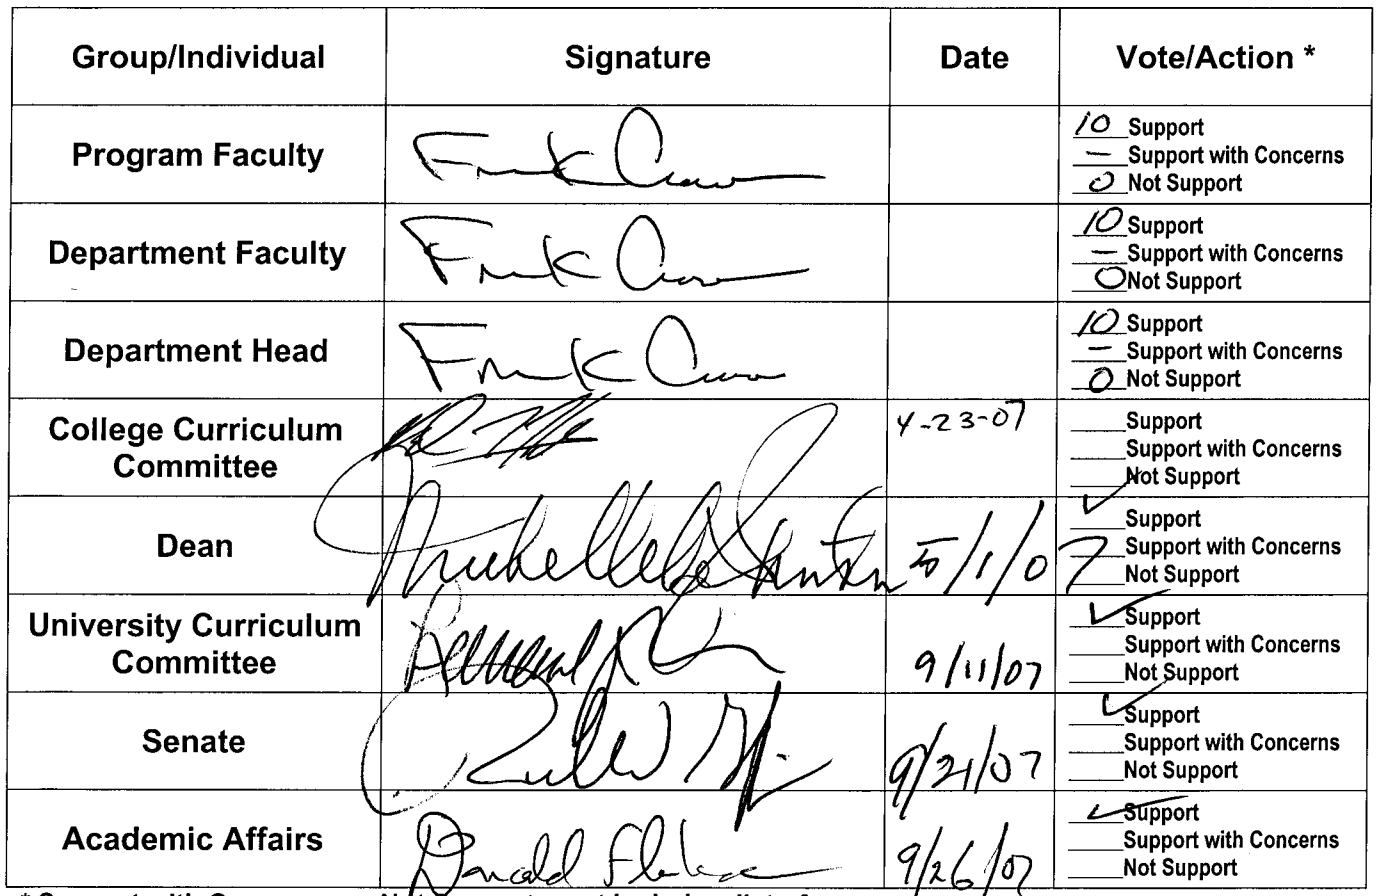 Group/Individual Signature Date Vote/Action *
Program Faculty Frank
10 Support
– Support with Concerns
0 Not Support
Department Faculty Frank
10 Support
– Support with Concerns
0 Not Support
Department Head Frank
10 Support
– Support with Concerns
0 Not Support
College Curriculum
Committee
4-23-07
Support
Support with Concerns
Not Support
Dean 5/1/07
✓ Support
Support with Concerns
Not Support
University Curriculum
Committee
9/11/07
✓ Support
Support with Concerns
Not Support
Senate 9/21/07
✓ Support
Support with Concerns
Not Support
Academic Affairs Donald 9/26/07
✓ Support
Support with Concerns
Not Support